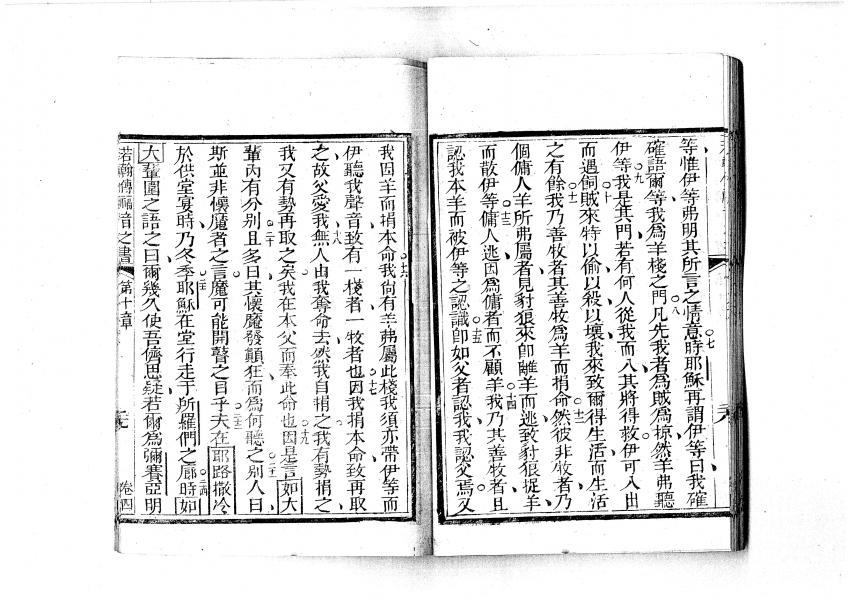 等惟伊等弗明其所言之情意○七時耶穌再謂伊等曰我確
確語爾等我為羊棧之門○八凡先我者為賊為掠然羊弗聽
伊等○九我是其門若有何人從我而入其將得救伊可入出
而遇飼○十賊來特以偷以殺以壞我來致爾得生活而生活
之有餘○十一我乃善牧者其善牧為羊而捐命○十二然彼非牧者乃
個傭人羊所弗屬者見豺狼來即離羊而逃致豺狼捉羊
而散伊等○十三傭人逃因為傭者而不顧羊○十四我乃其善牧者且
認我本羊而被伊等之認識○十五即如父者認我我認父焉又
我因羊而捐本命○十六我尚有羊弗屬此棧我須亦帶伊等而
伊聽我聲音致有一棧者一牧者也○十七因我捐本命致再取
之故父愛我○十八無人由我奪命去然我自捐之我有勢捐之
我又有勢再取之矣我在本父而奉此命也○十九因是言如大
輩內有分別○二十且多曰其懷魔發顛狂而為何聽之○二一別人曰
斯並非懷魔者之言魔可能開瞽之目乎○二二夫在耶路撒冷
於供堂宴時乃冬季○二三耶穌在堂行走于所羅們之廊時○二四如
大輩圍之語之曰爾幾久使吾儕思疑若爾為彌賽亞明
若翰傳福音之書 第十章 卷四